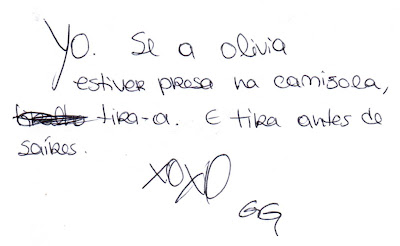 Yo. Se a olivia
estiver presa na camisola,
tira-a. E tira antes de
saíres.
XOXO
GG